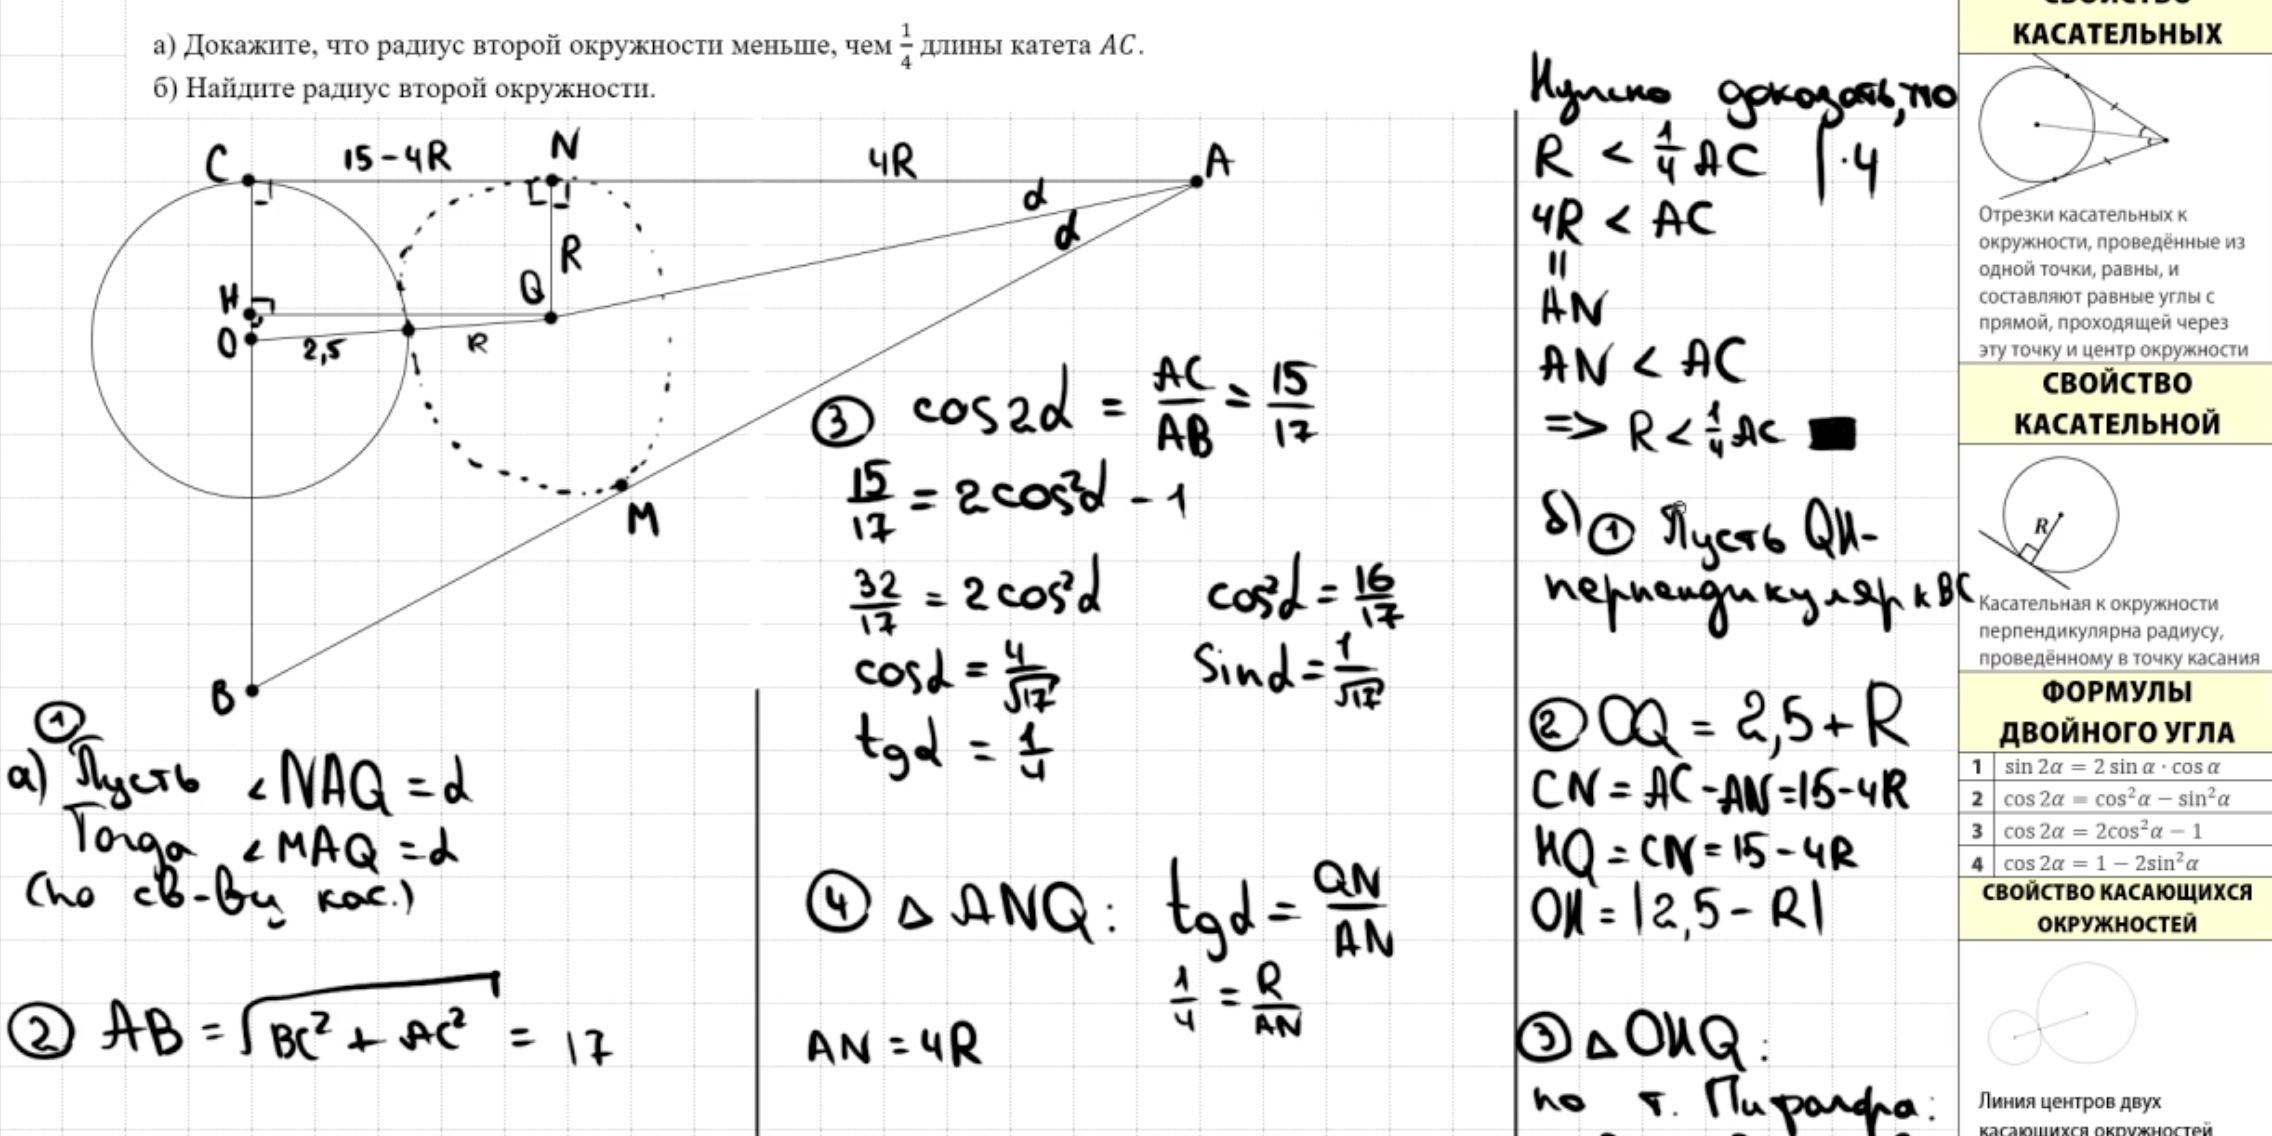 а) Докажите, что радиус второй окружности меньше, чем 1/4 длины катета AC.
б) Найдите радиус второй окружности.
C
15-4R
N
4R
A
α
α
R
H
Q
O
2,5
R
M
B
①
а) Пусть ∠NAQ = α
Тогда ∠MAQ = α
(по св-ву кас.)
② AB = √(BC² + AC²) = 17
③ cos2α = AC/AB = 15/17
15/17 = 2cos²α - 1
32/17 = 2cos²α cos²α = 16/17
cosα = 4/√17 sinα = 1/√17
tgα = 1/4
④ △ANQ: tgα = QN/AN
1/4 = R/AN
AN = 4R
Нужно доказать, что
R < 1/4 AC | ·4
4R < AC
=
AN
AN < AC
=> R < 1/4 AC ■
б) ① Пусть QH-
перпендикуляр к BC
② OQ = 2,5 + R
CN = AC - AN = 15 - 4R
HQ = CN = 15 - 4R
OH = |2,5 - R|
③ △OHQ:
по т. Пифагора:
СВОЙСТВО
КАСАТЕЛЬНЫХ
Отрезки касательных к
окружности, проведённые из
одной точки, равны, и
составляют равные углы с
прямой, проходящей через
эту точку и центр окружности
СВОЙСТВО
КАСАТЕЛЬНОЙ
R
Касательная к окружности
перпендикулярна радиусу,
проведённому в точку касания
ФОРМУЛЫ
ДВОЙНОГО УГЛА
1 sin 2α = 2 sin α · cos α
2 cos 2α = cos²α − sin²α
3 cos 2α = 2cos²α − 1
4 cos 2α = 1 − 2sin²α
СВОЙСТВО КАСАЮЩИХСЯ
ОКРУЖНОСТЕЙ
Линия центров двух
касающихся окружностей